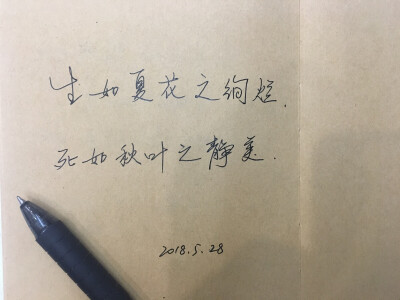 生如夏花之绚烂.
死如秋叶之静美.
2018.5.28